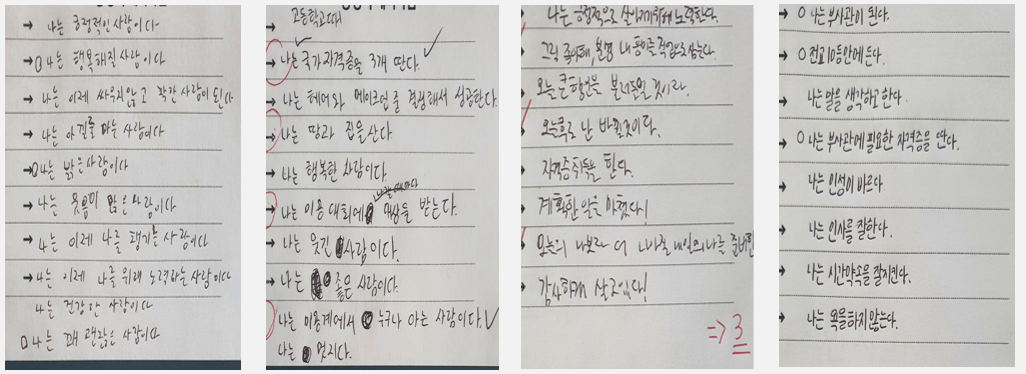 → 나는 긍정적인 사람이다
→ O 나는 행복해질 사람이다
→ 나는 이제 싸우지않고 착한 사람이 된다
→ 나는 아낄줄 아는 사람이다
→ O 나는 밝은 사람이다
→ 나는 웃음이 많은 사람이다
→ 나는 이제 나를 챙기는 사람이다
→ 나는 이제 나를 위해 노력하는 사람이다
나는 건강한 사람이다
O 나는 꽤 괜찮은 사람이다
고등학교때
→ 나는 국가자격증을 3개 딴다.
→ 나는 헤어와 메이크업 중 결정해서 성공한다.
→ 나는 땅과 집을 산다
→ 나는 행복한 사람이다.
→ 나는 미용 대회에 상을 받는다.
→ 나는 웃긴 사람이다.
→ 나는 좋은 사람이다.
→ 나는 미용계에서 누구나 아는 사람이다.
나는 멋지다.
나는 긍정적으로 살아가기위해 노력한다.
→ 오늘 큰 행운을 불러들일 것이다.
→ 오늘 난 바뀔것이다.
→ 자격증취득을 한다.
→ 계획한 일을 마쳤다!
→ 오늘의 나보다 더 나아질 내일의 나를 준비한
→ 감사하며 살고있다!
⇒ 3
→ O 나는 부사관이 된다.
→ O 전교 10등안에 든다.
→ 나는 말을 생각하고 한다.
→ O 나는 부사관에 필요한 자격증을 딴다.
→ 나는 인성이 바르다.
→ 나는 인사를 잘한다.
→ 나는 시간약속을 잘지킨다.
→ 나는 욕을하지 않는다.